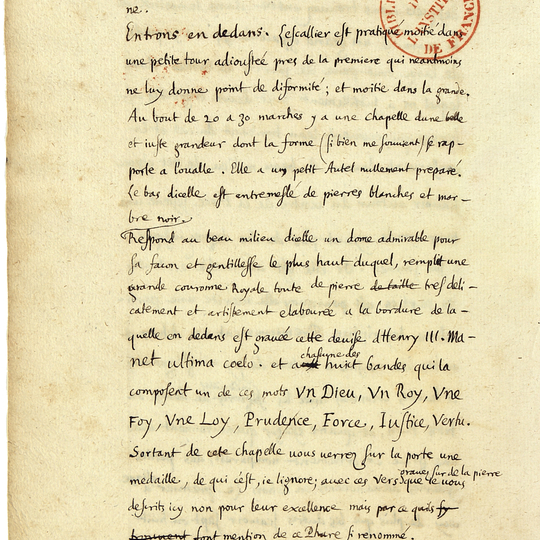 ne.
Entrons en dedans. L'escallier est pratiqué moitié dans
une petite tour adioustée pres de la premiere qui neantmoins
ne luy donne point de diformité ; et moitié dans la grande.
Au bout de 20 a 30 marches y a une chapelle dune belle
et iuste grandeur dont la forme (si bien me souvient) se rap-
porte a l'oualle . Elle a un petit Autel nullement preparé.
Le bas dicelle est entremeslé de pierres blanches et mar-
bre noir.
Respond au beau milieu dicelle un dome admirable pour
sa facon et gentillesse le plus haut duquel, remplit une
grande couronne Royale toute de pierre de taille tres deli-
catement et artistement elabourée a la bordure de la-
quelle en dedans est gravée cette devise d'Henry III. Ma-
net ultima coelo. et a chasqune des huict bandes qui la
composent un de ces mots Vn Dieu, Vn Roy, Vne
Foy, Vne Loy, Prudence, Force, Iustice, Vertu.
Sortant de cete chapelle vous verrez sur la porte une
medaille, de qui c'est, ie l'ignore; avec ces vers graués sur de la pierre que ie vous
descrits icy non pour leur excellence mais par ce quils
font mention de ce Phare si renommé.
L'INSTITUT
DE FRANCE